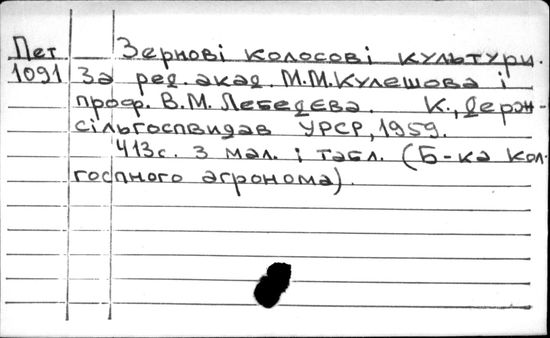 Пет Зернові колосові культури.
1091 За ред. акад. М.М.Кулешова і
проф. В.М. Лебедєва. К., Держ-
сільгоспвидав УРСР, 1959.
413с. з мал. і табл. (Б-ка кол-
госпного агронома).